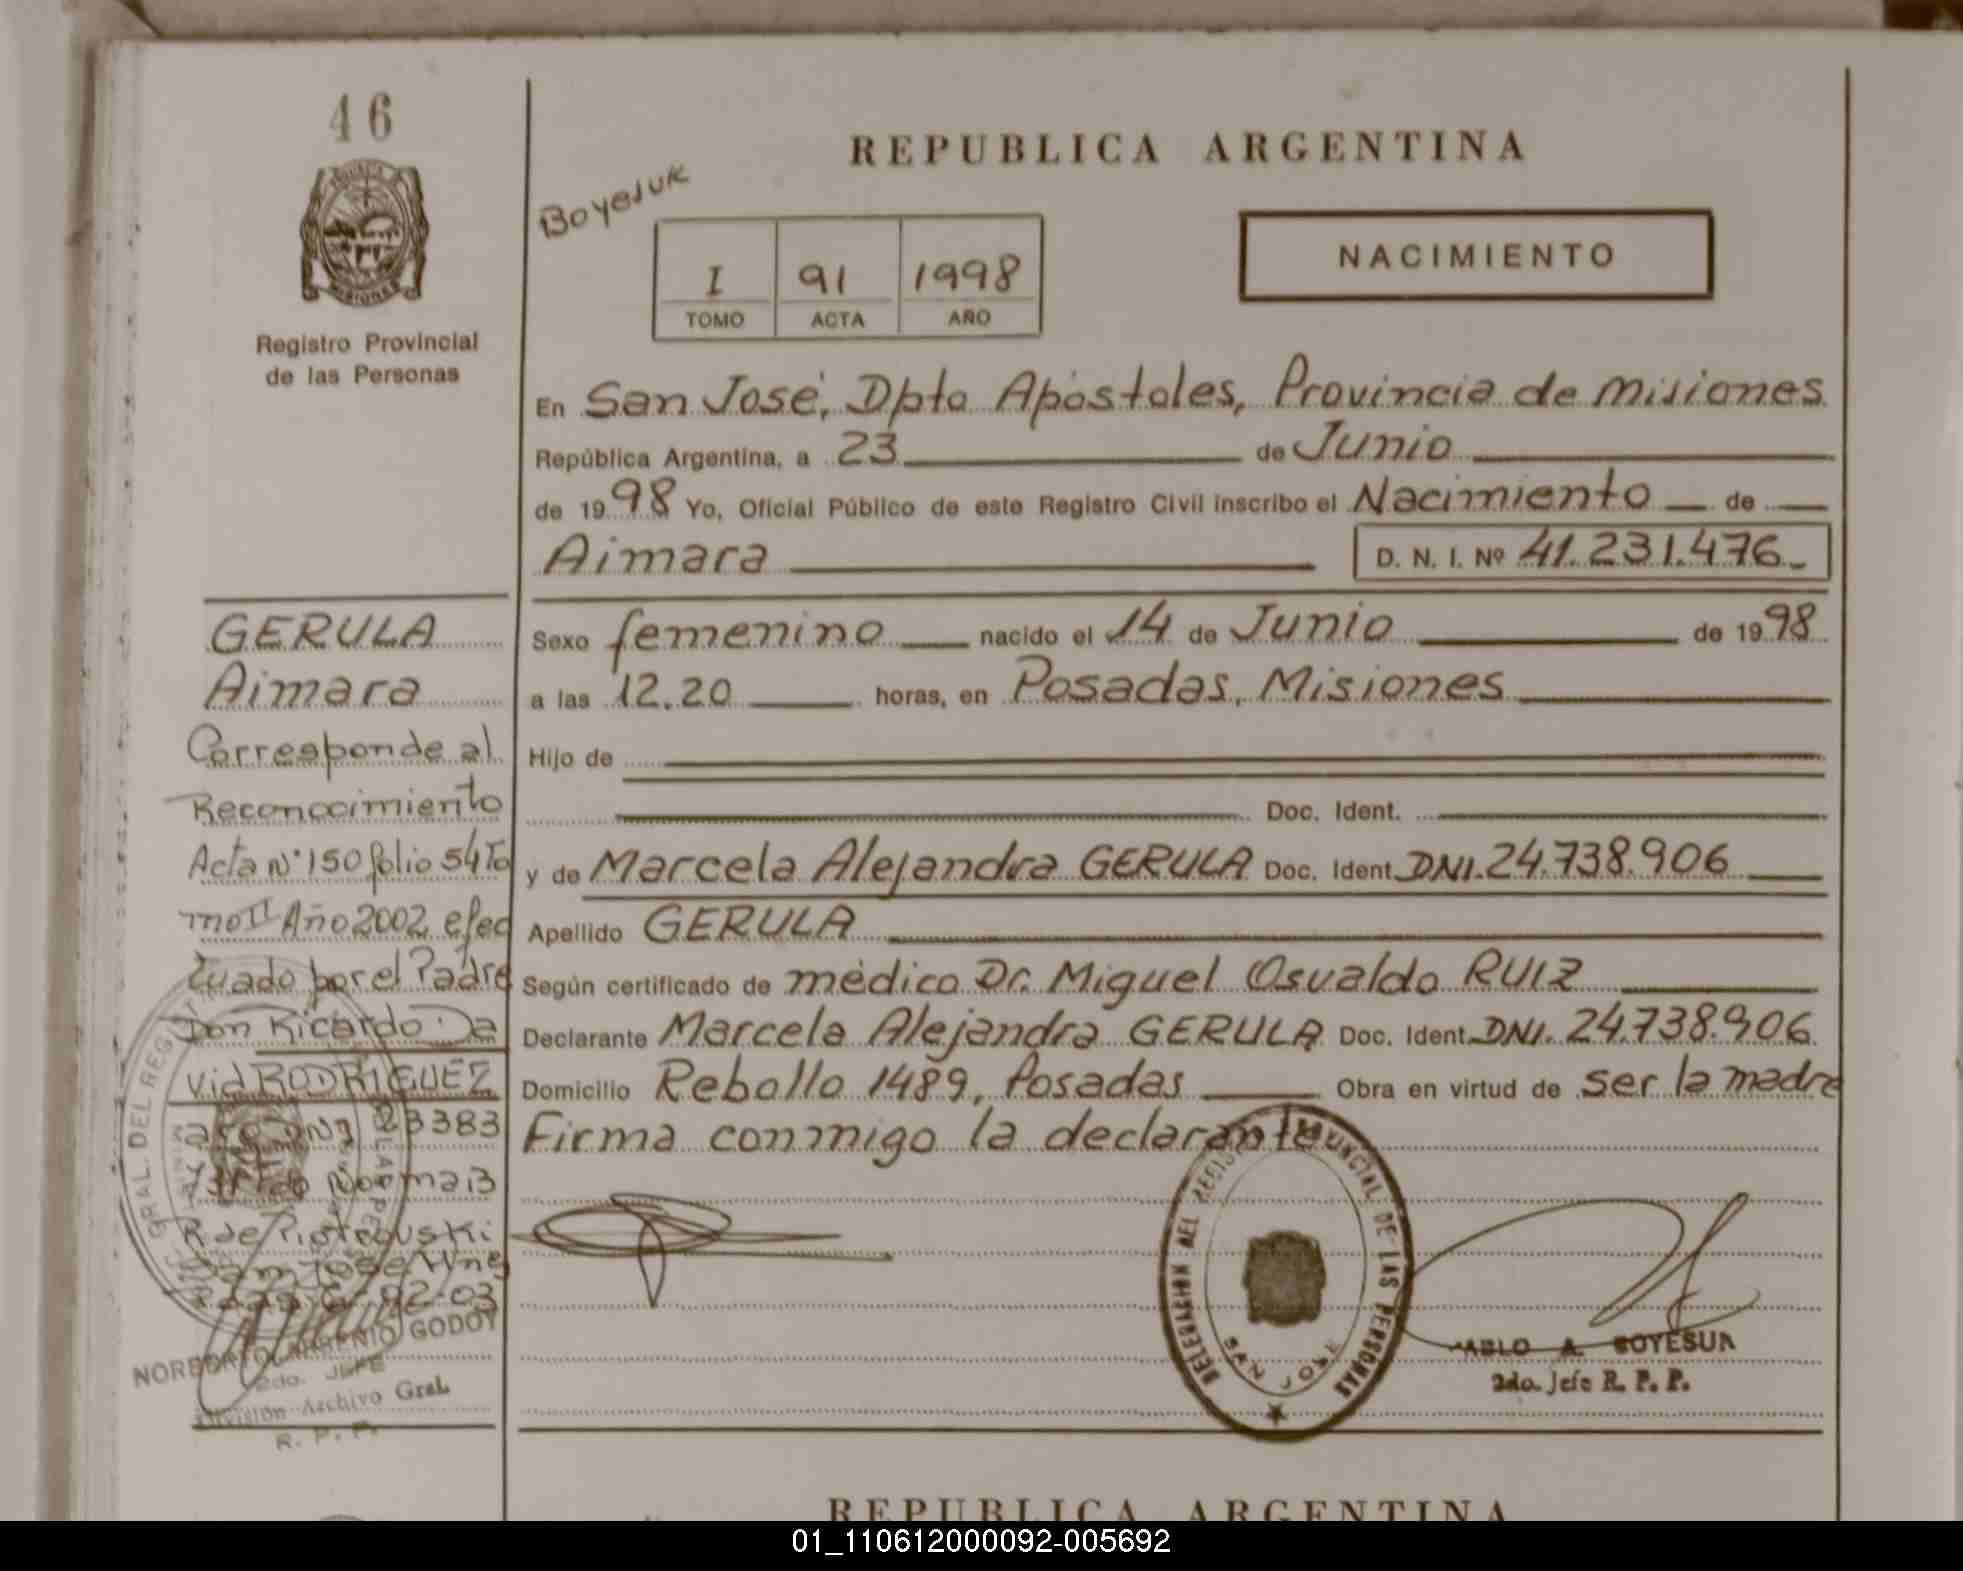 46
REPUBLICA ARGENTINA
Boyejuk
MISIONES
I 91 1998
TOMO ACTA AÑO
NACIMIENTO
Registro Provincial
de las Personas
En San José, Dpto Apóstoles, Provincia de Misiones
República Argentina, a 23 de Junio
de 1998 Yo, Oficial Público de este Registro Civil inscribo el Nacimiento de
Aimara D. N. I. Nº 41.231.476
Sexo femenino nacido el 14 de Junio de 1998
a las 12.20 horas, en Posadas, Misiones
Hijo de
Doc. Ident.
y de Marcela Alejandra GERULA Doc. Ident. DNI. 24.738.906
Apellido GERULA
Según certificado de médico Dr. Miguel Osvaldo RUIZ
Declarante Marcela Alejandra GERULA Doc. Ident. DNI. 24.738.906
Domicilio Rebollo 1489, Posadas Obra en virtud de ser la madre
Firma conmigo la declarante
GERULA
Aimara
Corresponde al
Reconocimiento
Acta Nº 150 folio 54 To
mo II Año 2002 efec
tuado por el Padre
Don Ricardo Da
vid RODRIGUEZ
23383
Norma B
R de Piotrouski
San José Mnes
02-03
NORBERTO ARSENIO GODOY
2do. JEFE
División Archivo Gral.
R. P. P.
GRAL. DEL REG
DELEGACION DEL REGISTRO PROVINCIAL DE LAS PERSONAS
SAN JOSE
PABLO A. BOYESUK
2do. Jefe R. P. P.
REPUBLICA ARGENTINA
01_110612000092-005692